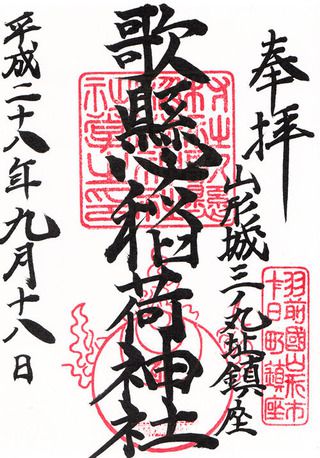 奉拝
山形城三ノ丸址鎮座
羽前國山形市
十日町鎮座
歌懸稲荷神社
平成二十八年九月十八日